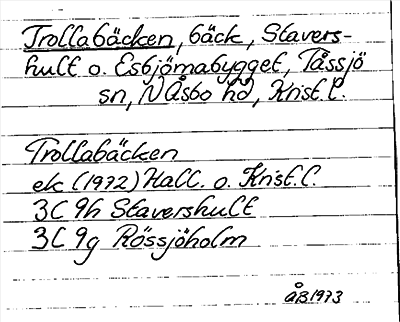 Trollabäcken, bäck, Stavers-
hult o. Esbjörnabygget, Tåssjö
sn, N Åsbo hd, Krist.l.
Trollabäcken
ek (1972) Hall. o. Krist.l.
3C 9h Stavershult
3C 9g Rössjöholm
ÅB 1973